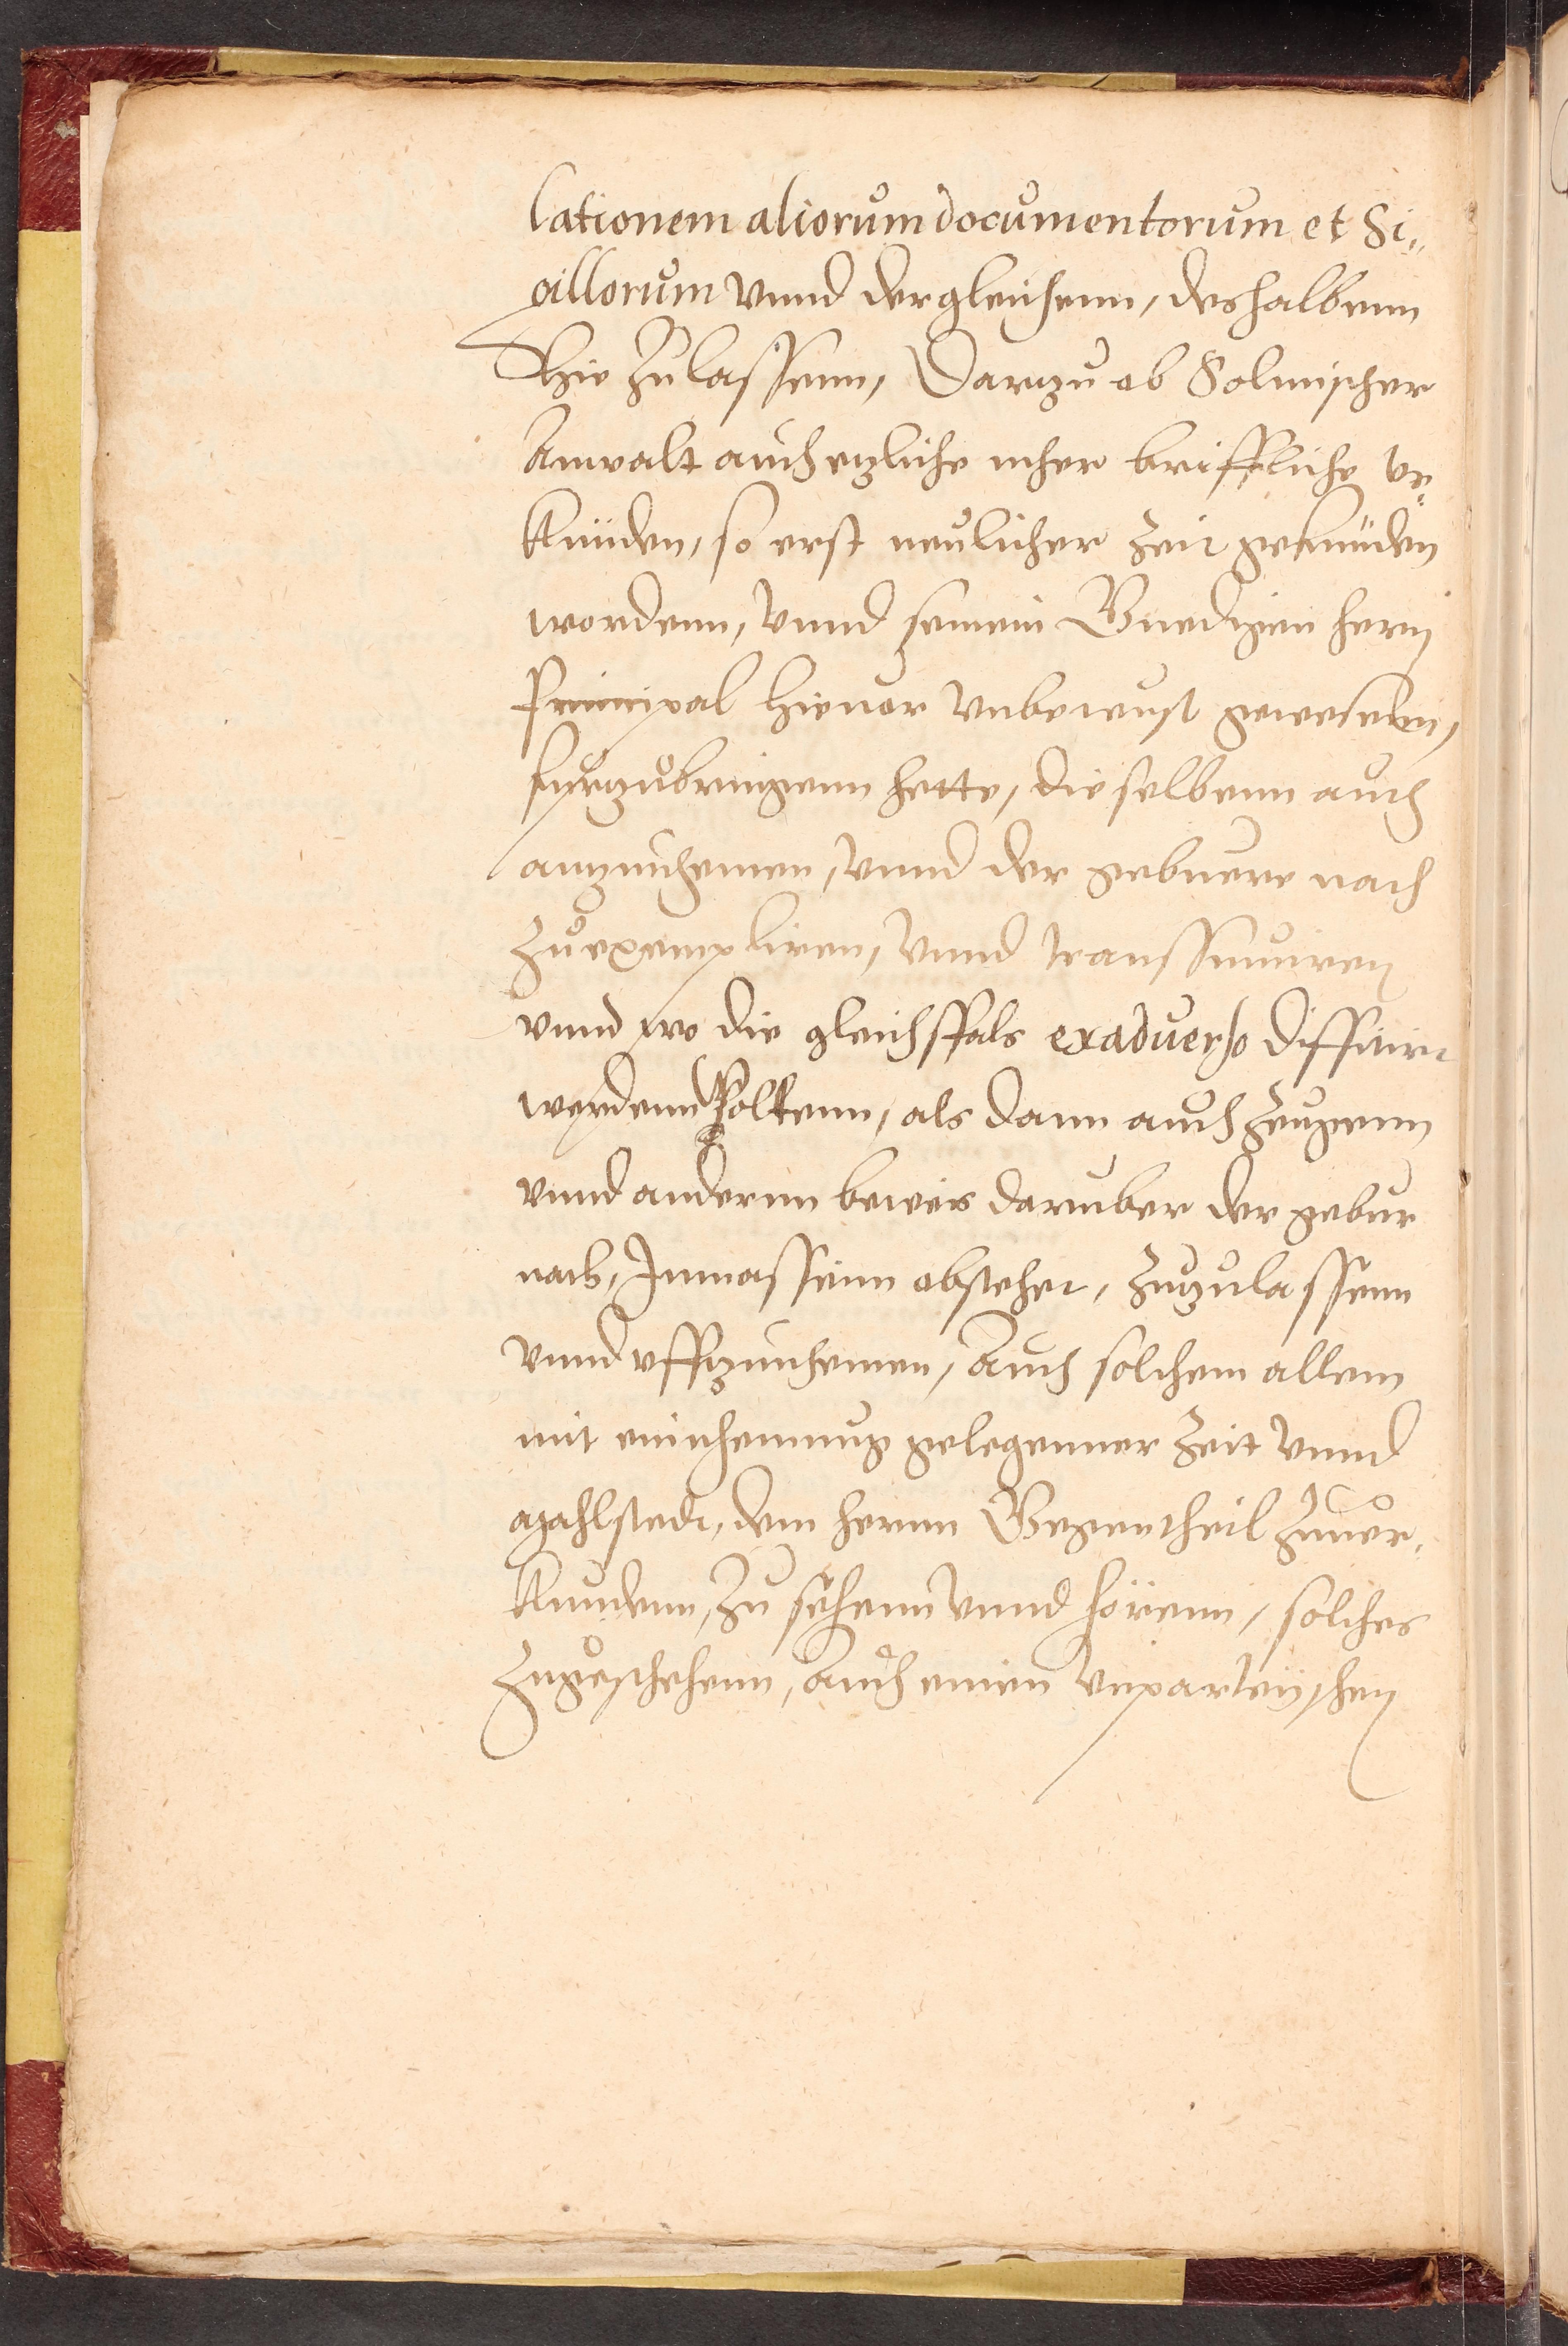 lationem aliorum documentorum et Si„
gillorum vnnd dergleichenn, deshalbenn
Hie zulassenn, Dartzu ob Solmischer
Anwalt auch etzliche mher briffliche vr„
kunden, so erst neulicher Zeit gefunden
wordenn, vnnd seinem Gnedigen hern
Principal hieuor vnbewust gewesenn,
furtzubringenn hette, dieselbenn auch
antzunhemen, vnnd der gebuere nach
zu exempliren, vnnd transsumiren
vnnd wo die gleichsfals ex aduerso diffitirt
werdenn soltenn, als dann auch Zeugenn
vnnd andernn beweis daruber der gebur
nach, Inmassenn obstehet, zuzulassenn
vnnd vfftzunhemen, Auch solchem allem
mit einnhemung gelegenner Zeit vnnd
mahlstedt, dem hernn Gegentheil zuuer„
kundenn, zu sehenn vnnd hörenn, solches
zugeschehenn, Auch einen vnparteyschen